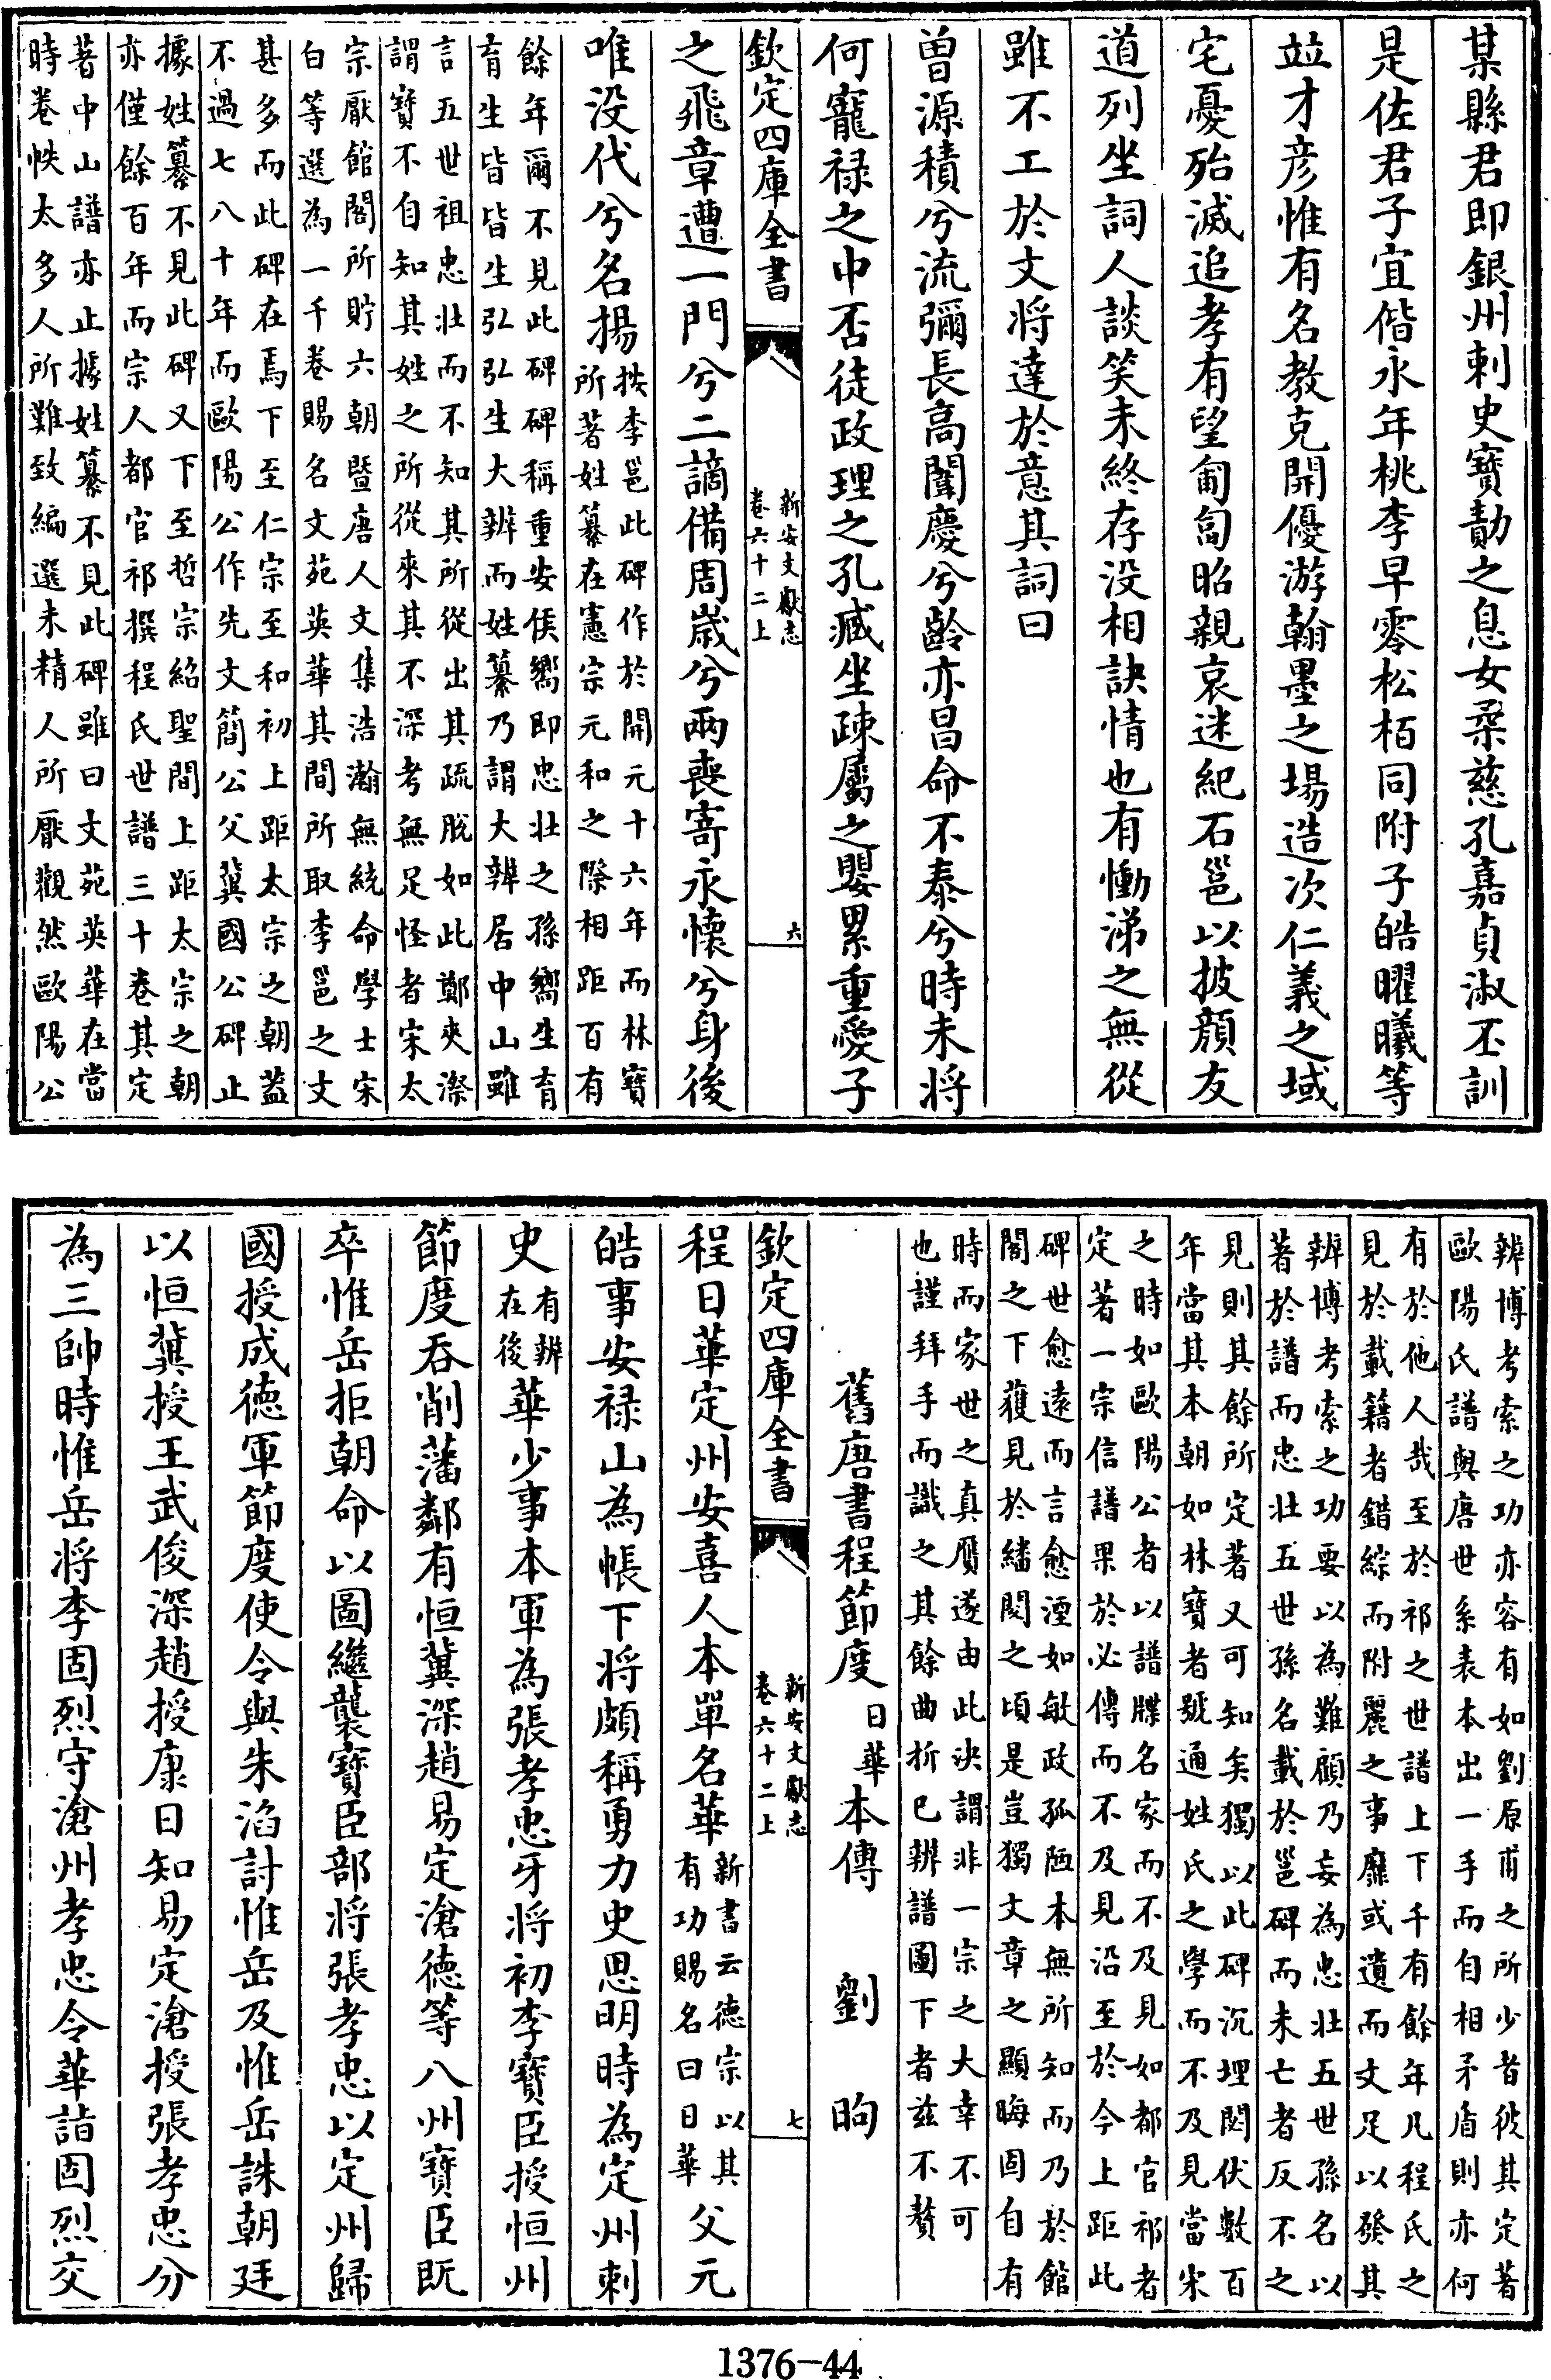 某縣君即銀州刺史寶勣之息女柔慈孔嘉貞淑丕訓
是佐君子宜偕永年桃李早零松栢同附子皓曜曦等
竝才彦惟有名教克開優游翰墨之場造次仁義之域
宅憂殆滅追孝有望匍匐昭親哀迷紀石邕以披顔友
道列坐詞人談笑未終存没相訣情也有慟涕之無從
雖不工於文将達於意其詞曰
曽源積兮流彌長高闈慶兮齡亦昌命不泰兮時未将
何寵禄之中否徒政理之孔臧坐疎屬之嬰累重愛子
欽定四庫全書
新安文獻志
卷六十二上
六
之飛章遭一門兮二謫備周嵗兮兩喪寄永懐兮身後
唯没代兮名揚
按李邕此碑作於開元十六年而林寶
所著姓纂在憲宗元和之際相距百有
餘年爾不見此碑碑稱重安侯嚮即忠壯之孫嚮生育
育生皆皆生弘弘生大辨而姓纂乃謂大辨居中山雖
言五世祖忠壯而不知其所從出其疏脱如此鄭夾漈
謂寶不自知其姓之所從來其不深考無足怪者宋太
宗厭館閣所貯六朝暨唐人文集浩瀚無統命學士宋
白等選為一千卷賜名文苑英華其間所取李邕之文
甚多而此碑在焉下至仁宗至和初上距太宗之朝葢
不過七八十年而歐陽公作先文簡公父冀國公碑止
據姓纂不見此碑又下至哲宗紹聖間上距太宗之朝
亦僅餘百年而宗人都官祁撰程氏世譜三十卷其定
著中山譜亦止據姓纂不見此碑雖曰文苑英華在當
時卷帙太多人所難致編選未精人所厭觀然歐陽公
辨博考索之功亦容有如劉原甫之所少者彼其定著
歐陽氏譜與唐世系表本出一手而自相矛盾則亦何
有於他人哉至於祁之世譜上下千有餘年凡程氏之
見於載籍者錯綜而附麗之事靡或遺而文足以發其
辨博考索之功要以為難顧乃妄為忠壯五世孫名以
著於譜而忠壯五世孫名載於邕碑而未亡者反不之
見則其餘所定著又可知矣獨以此碑沉埋閟伏數百
年當其本朝如林寶者號通姓氏之學而不及見當宋
之時如歐陽公者以譜牒名家而不及見如都官祁者
定著一宗信譜果於必傳而不及見沿至於今上距此
碑世愈遠而言愈湮如敏政孤陋本無所知而乃於館
閣之下獲見於繙閲之頃是豈獨文章之顯晦固自有
時而家世之真贋遂由此決謂非一宗之大幸不可
也謹拜手而識之其餘曲折已辨譜圖下者兹不贅
舊唐書程節度日華本傳　劉昫
欽定四庫全書
新安文獻志
卷六十二上
七
程日華定州安喜人本單名華
新書云德宗以其
有功賜名曰日華
父元
皓事安禄山為帳下将頗稱勇力史思明時為定州刺
史
有辨
在後
華少事本軍為張孝忠牙将初李寶臣授恒州
節度吞削藩鄰有恒冀深趙易定滄德等八州寶臣既
卒惟岳拒朝命以圖繼襲寶臣部将張孝忠以定州歸
國授成德軍節度使令與朱滔討惟岳及惟岳誅朝廷
以恒冀授王武俊深趙授康日知易定滄授張孝忠分
為三帥時惟岳将李固烈守滄州孝忠令華詣固烈交
1376—44